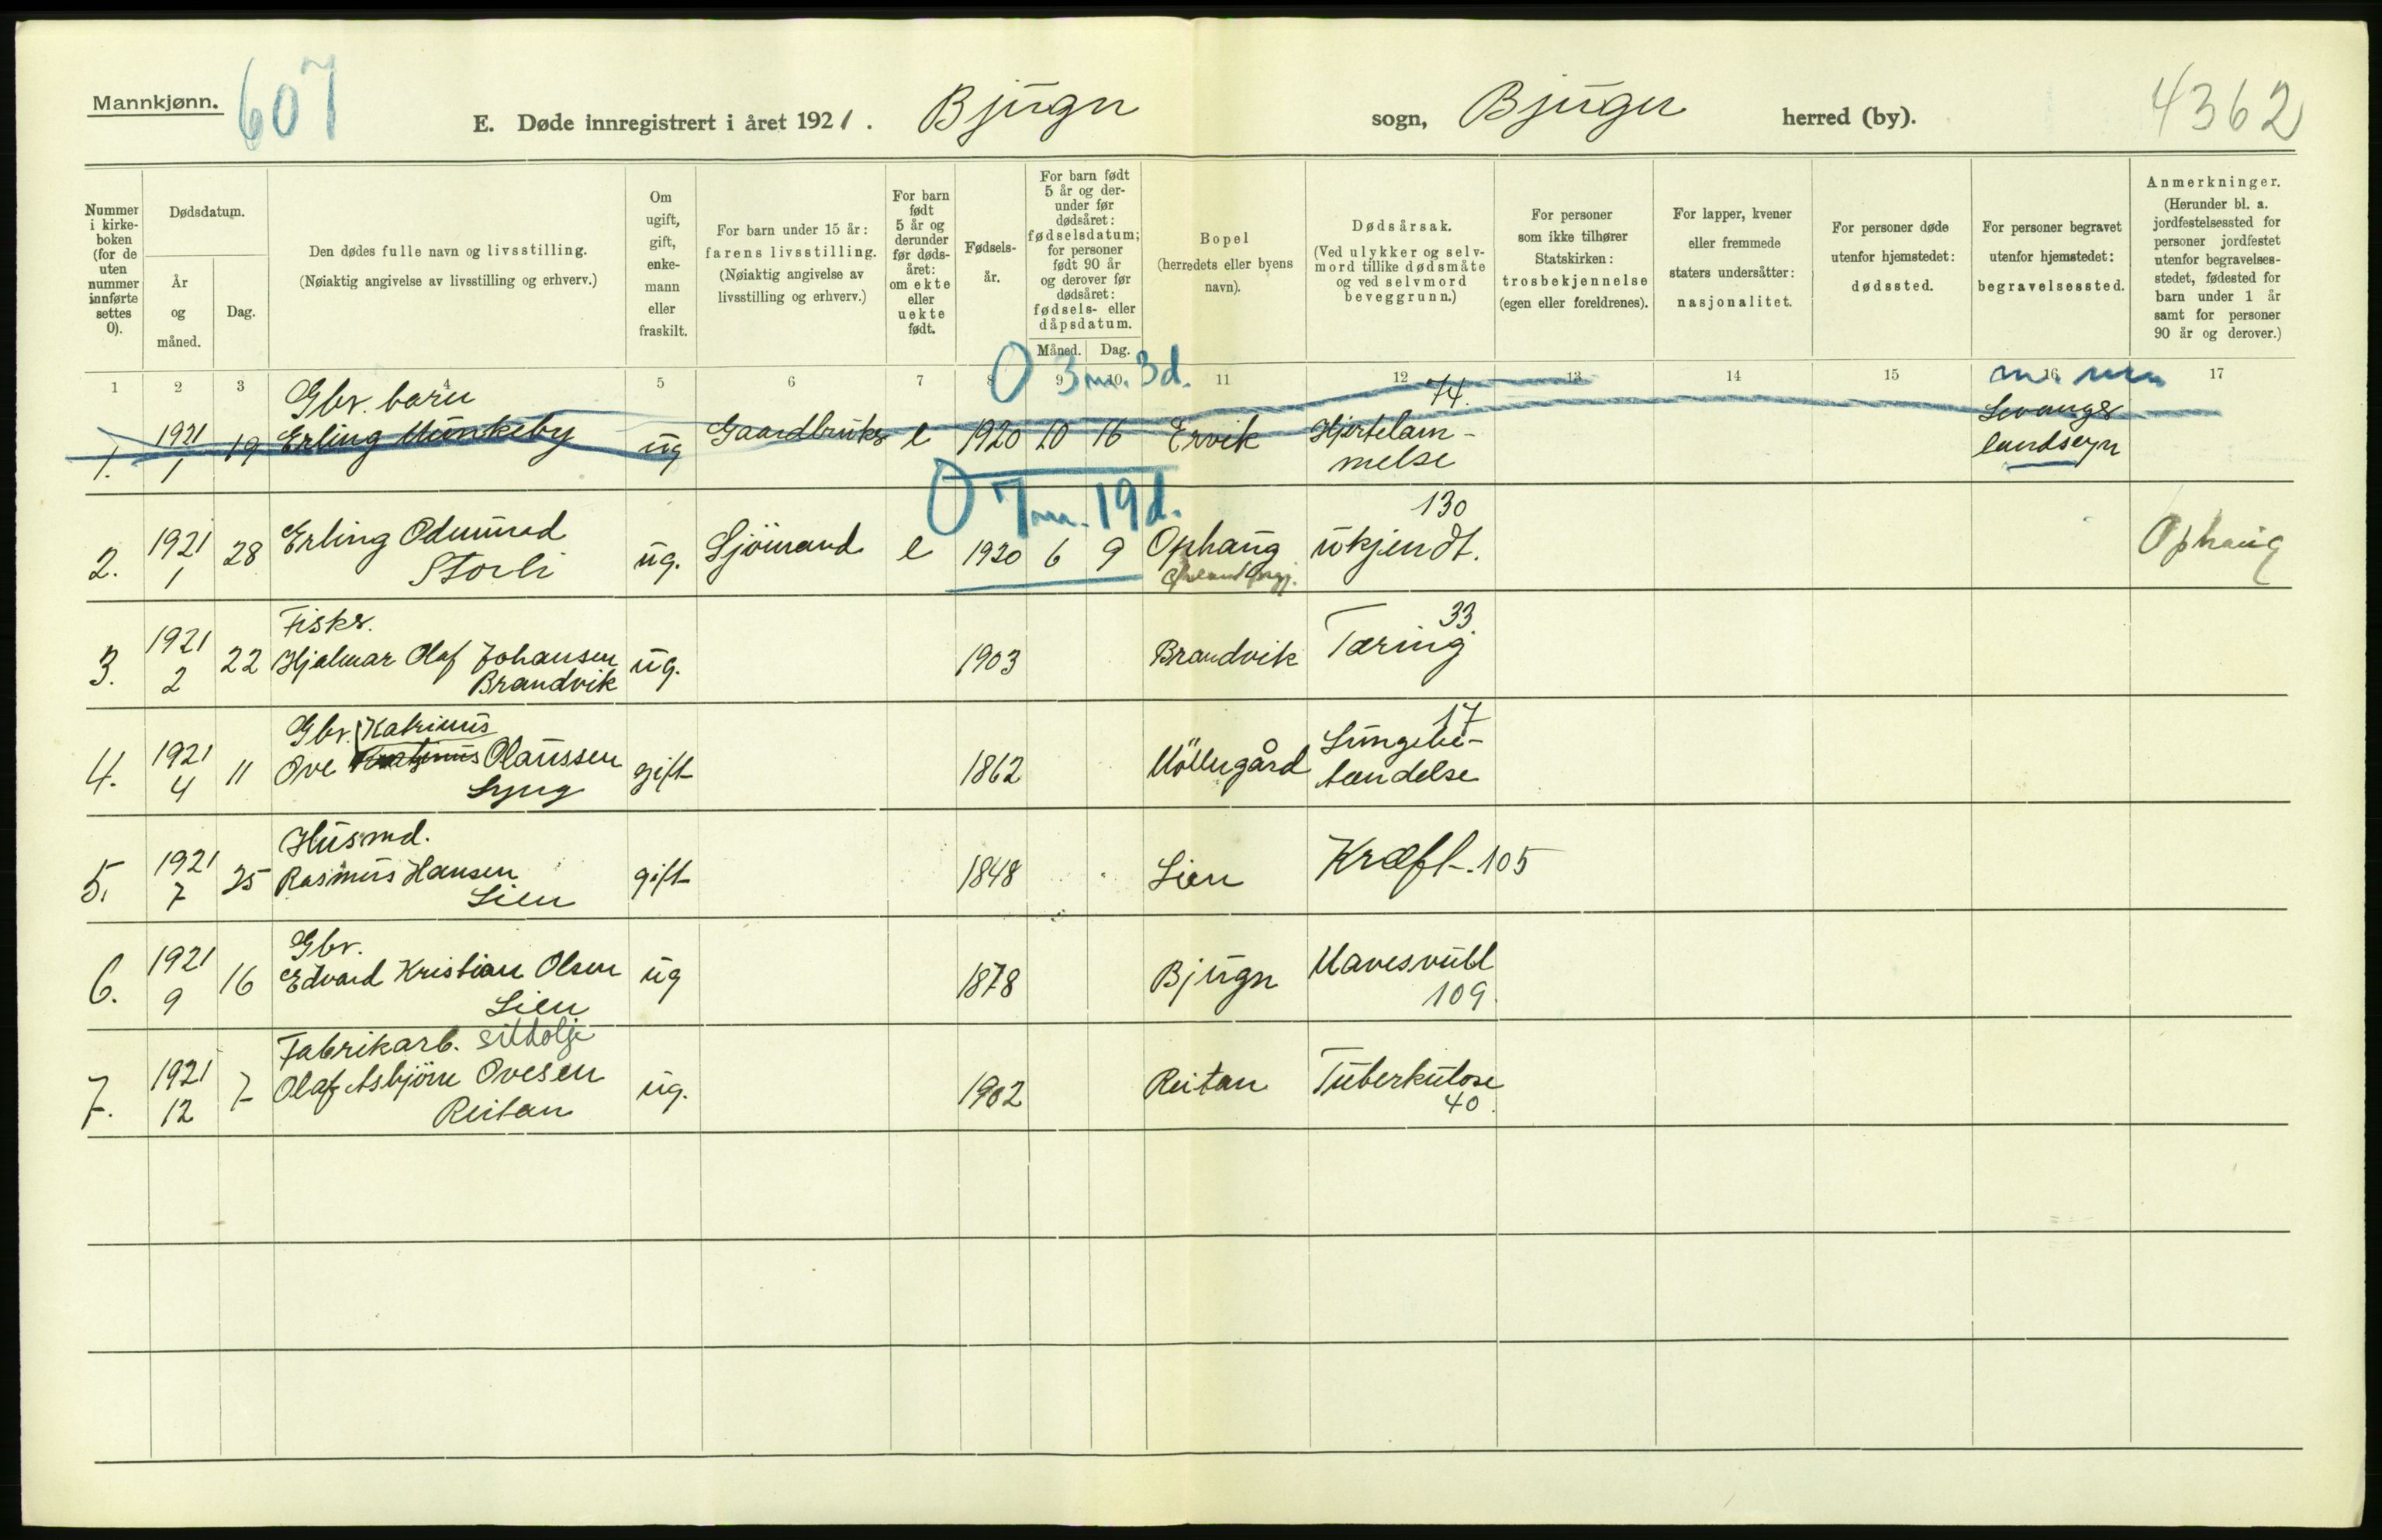 Mannkjønn.
607
E. Døde innregistrert i året 1921. Bjugn sogn, Bjugn herred (by).
4362
Nummer i kirke-boken (for de uten nummer innførte settes 0).
Dødsdatum.
År og måned.
Dag.
Den dødes fulle navn og livsstilling.
(Nøiaktig angivelse av livsstilling og erhverv.)
Om ugift, gift, enke-mann eller fraskilt.
For barn under 15 år: farens livsstilling.
(Nøiaktig angivelse av livsstilling og erhverv.)
For barn født 5 år og derunder før døds-året: om ekte eller uekte født.
Fødsels-år.
For barn født 5 år og der-under før dødsåret: fødselsdatum; for personer født 90 år og derover før dødsåret: fødsels- eller dåpsdatum.
Måned. Dag.
Bopel (herredets eller byens navn).
Dødsårsak.
(Ved ulykker og selv-mord tillike dødsmåte og ved selvmord beveggrunn.)
For personer som ikke tilhører Statskirken: trosbekjennelse (egen eller foreldrenes).
For lapper, kvener eller fremmede staters undersåtter: nasjonalitet.
For personer døde utenfor hjemstedet: dødssted.
For personer begravet utenfor hjemstedet: begravelsessted.
Anmerkninger.
(Herunder bl. a. jordfestelsessted for personer jordfestet utenfor begravelses-stedet, fødested for barn under 1 år samt for personer 90 år og derover.)
1 2 3 4 5 6 7 8 9 10 11 12 13 14 15 16 17
0 3 m. 3 d.
Gbr. barn
74.
1. 1921 1 19 Erling Munkeby ug Gaardbruker e 1920 10 16 Ervik Hjertelam-
melse
Levanger
landsogn
0 7 m. 19 d.
130
2. 1921 1 28 Erling Odmund
Storli ug. Sjömand e 1920 6 9 Ophaug ukjendt. Ophaug
Fisker.
33.
3. 1921 2 22 Hjalmar Olaf Johansen
Brandvik ug. 1903 Brandvik Tæring
Gbr. Katrinus
17
4. 1921 4 11 Ove Olaussen
Lyng gift 1862 Möllegård Lungebe-
tændelse
Husmd.
5. 1921 7 25 Rasmus Hansen
Lien gift 1848 Lien Kræft. 105
Gbr.
6. 1921 9 16 Edvard Kristian Olsen
Lien ug 1878 Bjugn Mavesvull
109.
Fabrikarb. sildolje
7. 1921 12 7 Olaf Asbjörn Ovesen
Reitan ug. 1902 Reitan Tuberkulose
40.